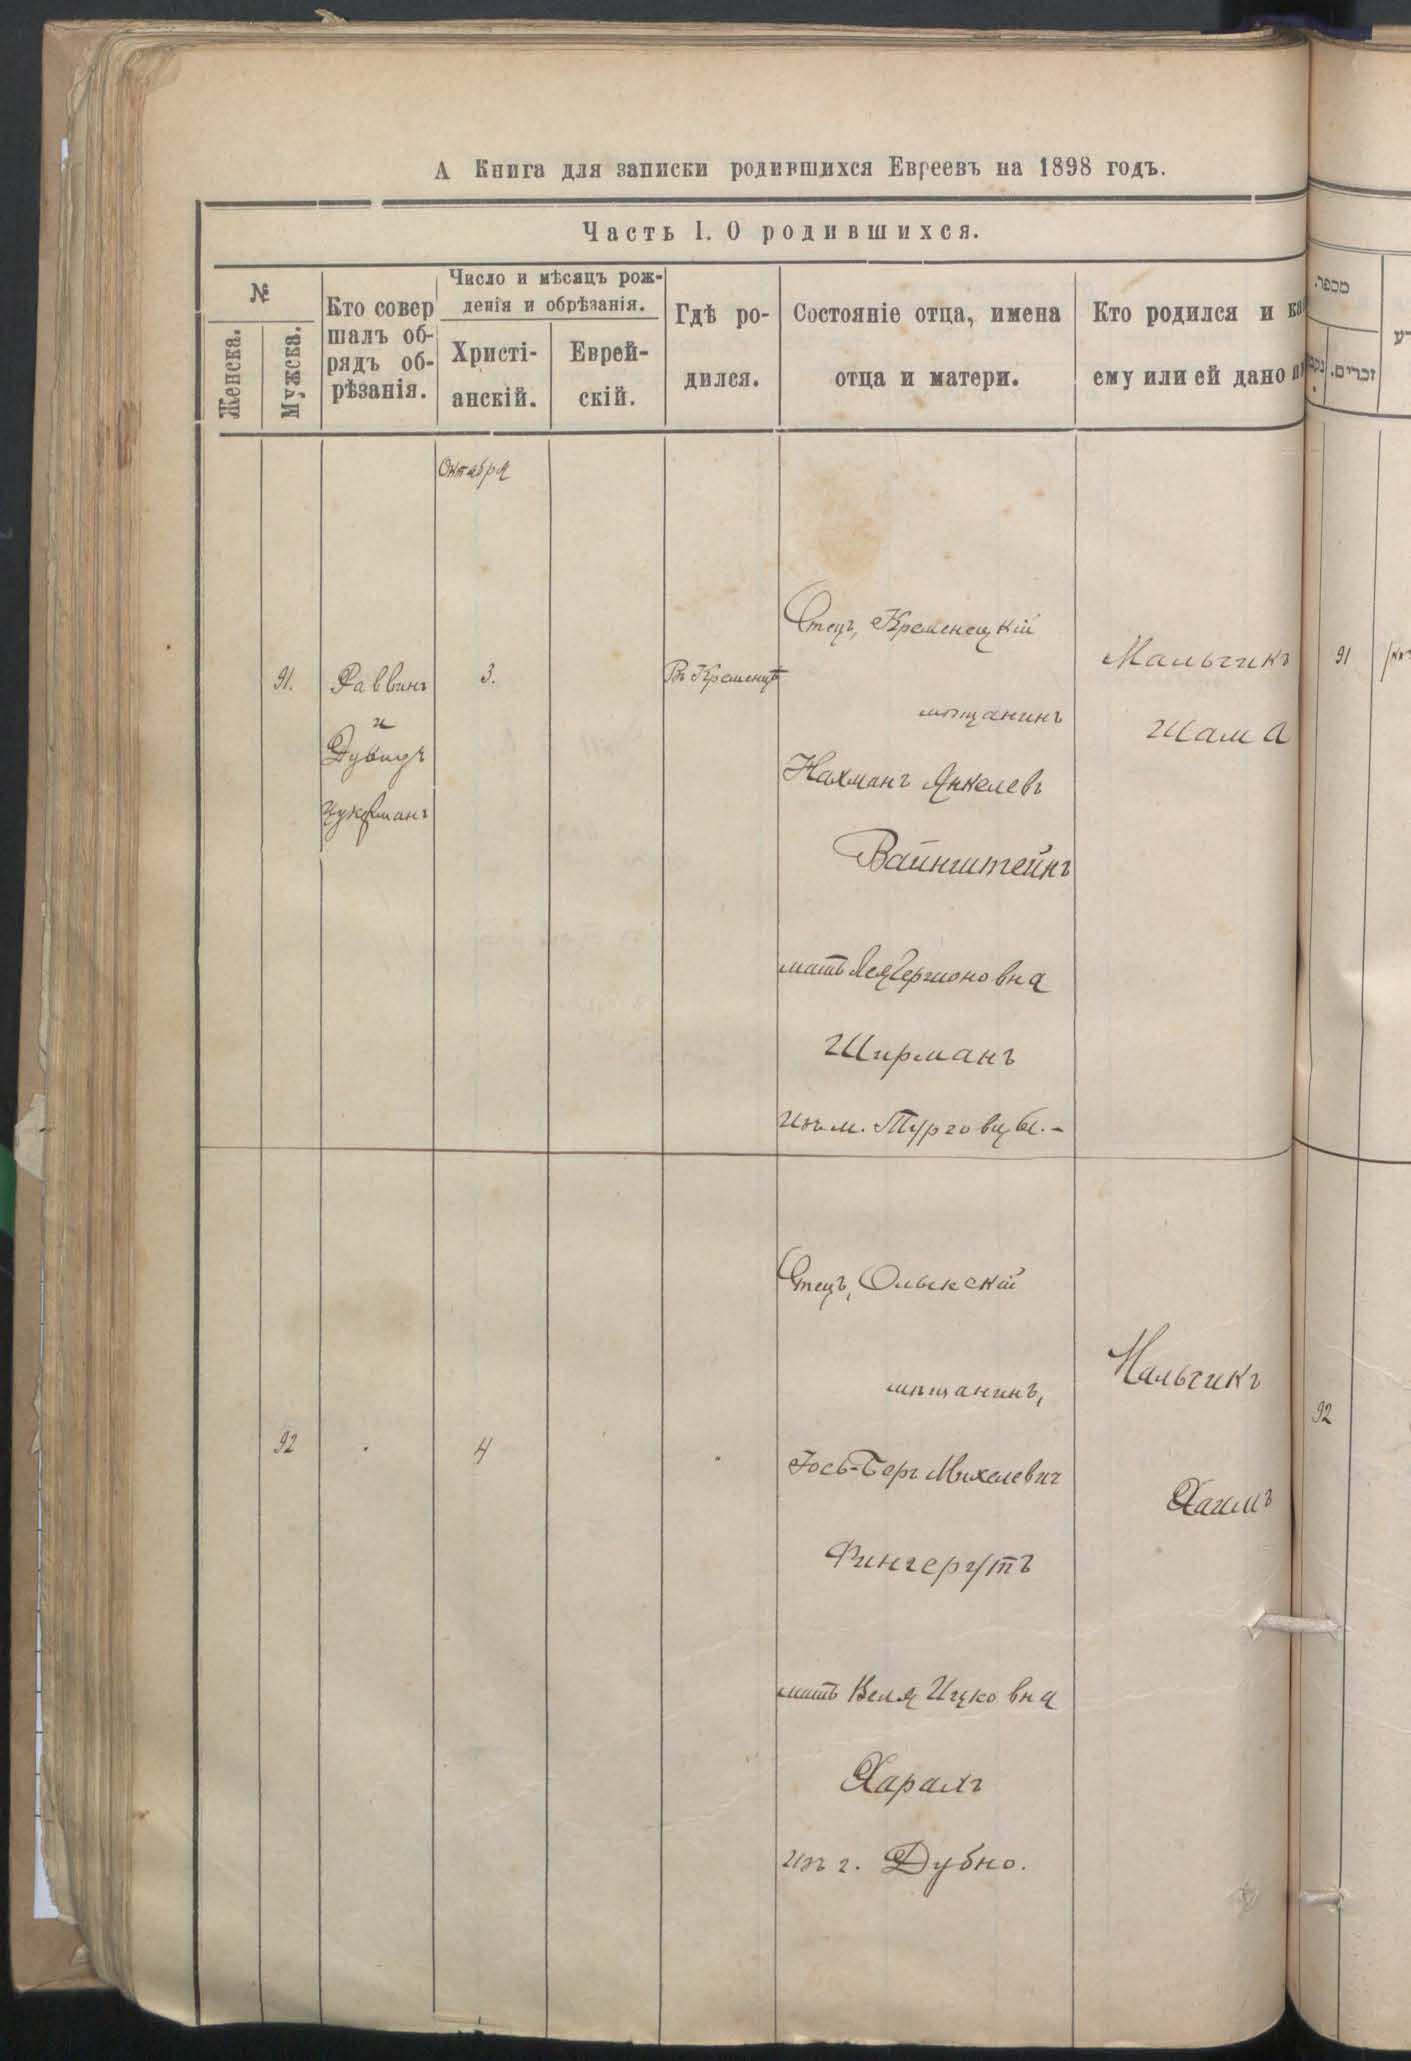 А Книга для записки родившихся Евреевъ на 1898 годъ.
Часть I. О родившихся.
№
Женска.
Мужска.
Кто совер
шалъ об-
рядъ об-
рѣзанія.
Число и мѣсяцъ рож-
денія и обрѣзанія.
Христі-
анскій.
Еврей-
скій.
Гдѣ ро-
дился.
Состояніе отца, имена
отца и матери.
Кто родился и ка
ему или ей дано
מספר.
זכרים.
Октября
91.
Раввинъ
и
Дувидъ
Цукерманъ
3.
Въ Кременцѣ
Отецъ, Кременецкій
мѣщанинъ
Нахманъ Янкелевъ
Вайнштейнъ
мать Гершоновна
Ширманъ
изъ м. Турговцы.-
Мальчикъ
Шама
91
92
4
Отецъ, Олыкскій
мѣщанинъ,
Іось-Беръ Михелевич
Фингергутъ
мать Веля Ицковна
Харахъ
изъ г. Дубно.
Мальчикъ
Хаимъ
92